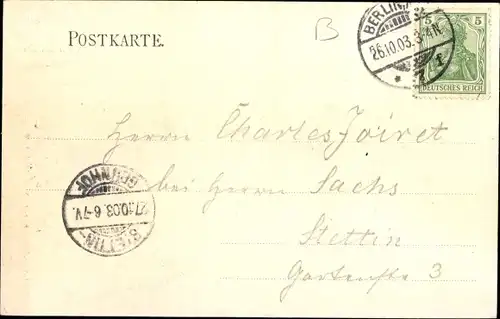 B
BERLIN
26.10.03. 3-4N.
5 5
DEUTSCHES REICH
POSTKARTE.
Herrn Charles Joiret
bei Herrn Sachs
Stettin
Gartenstr 3
GRÜNHOF
27.10.03. 6-7V.
STETTIN-